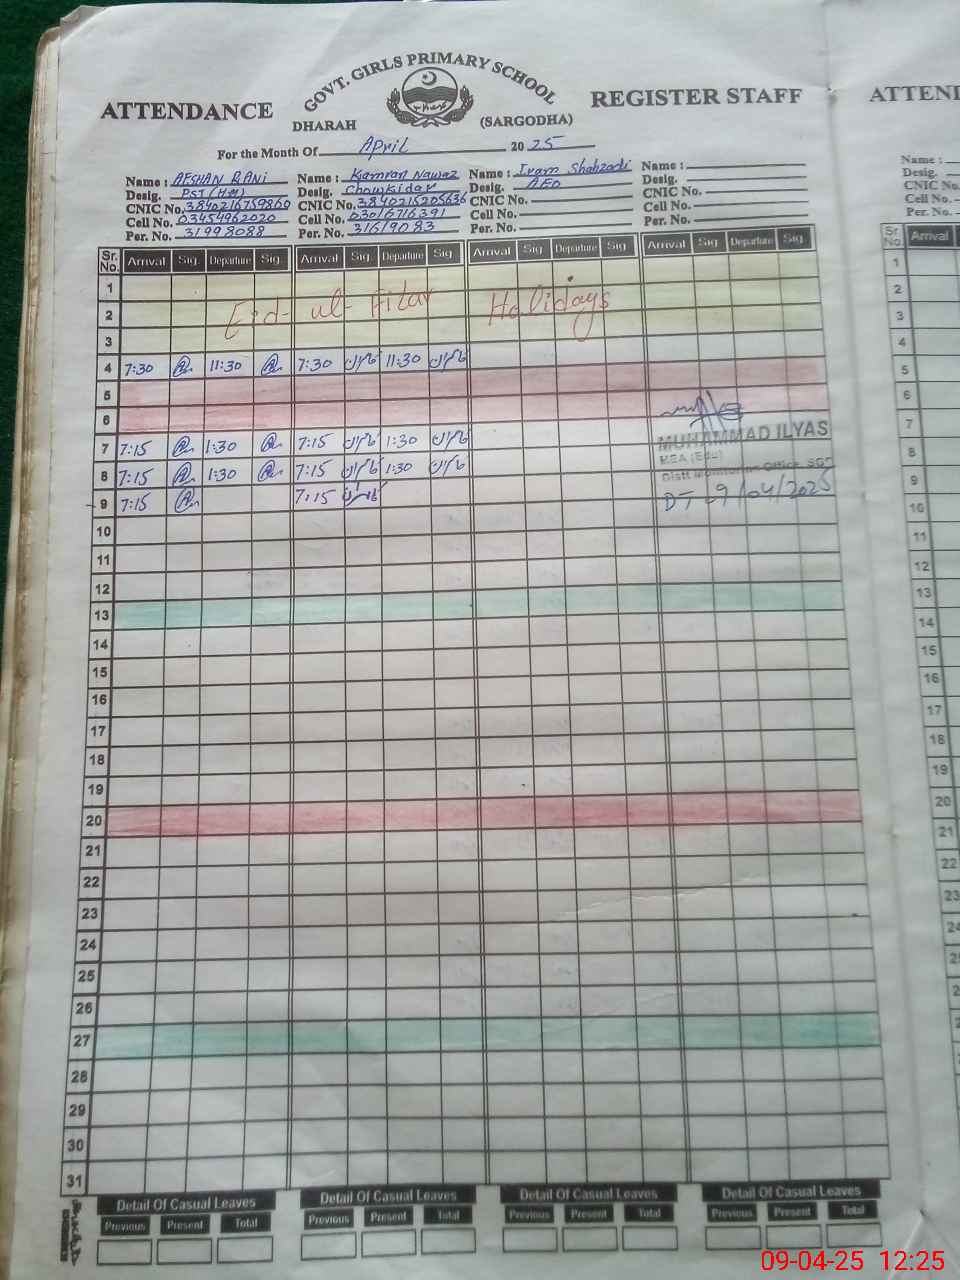 GOVT. GIRLS PRIMARY SCHOOL
ATTENDANCE REGISTER STAFF
DHARAH (SARGODHA)
For the Month Of April 20 25
Name : AFSHAN RANI Name : Kamran Nawaz Name : Iram Shahzadi Name :
Desig. PST (HM) Desig. Chowkidar Desig. AEO Desig.
CNIC No. 3840216759860 CNIC No. 3840215205636 CNIC No. CNIC No.
Cell No. 03454962020 Cell No. 03016716391 Cell No. Cell No.
Per. No. 31998088 Per. No. 31619083 Per. No. Per. No.
Sr. No. Arrival Sig. Departure Sig. Arrival Sig. Departure Sig. Arrival Sig. Departure Sig. Arrival Sig. Departure Sig.
1
2 Eid-ul-Fitar Holidays
3
4 7:30 11:30 7:30 کامران 11:30 کامران
5
6
7 7:15 1:30 7:15 کامران 1:30 کامران
MUHAMMAD ILYAS
8 7:15 1:30 7:15 کامران 1:30 کامران
MEA (Edu)
Distt Monitoring Office, SGD
9 7:15 7:15 کامران
DT-9/04/2025
10
11
12
13
14
15
16
17
18
19
20
21
22
23
24
25
26
27
28
29
30
31
Detail Of Casual Leaves Detail Of Casual Leaves Detail Of Casual Leaves Detail Of Casual Leaves
Previous Present Total Previous Present Total Previous Present Total Previous Present Total
ATTEND
Name :
Desig.
CNIC No.
Cell No.
Per. No.
Sr. No. Arrival
1
2
3
4
5
6
7
8
9
10
11
12
13
14
15
16
17
18
19
20
21
22
23
24
09-04-25 12:25